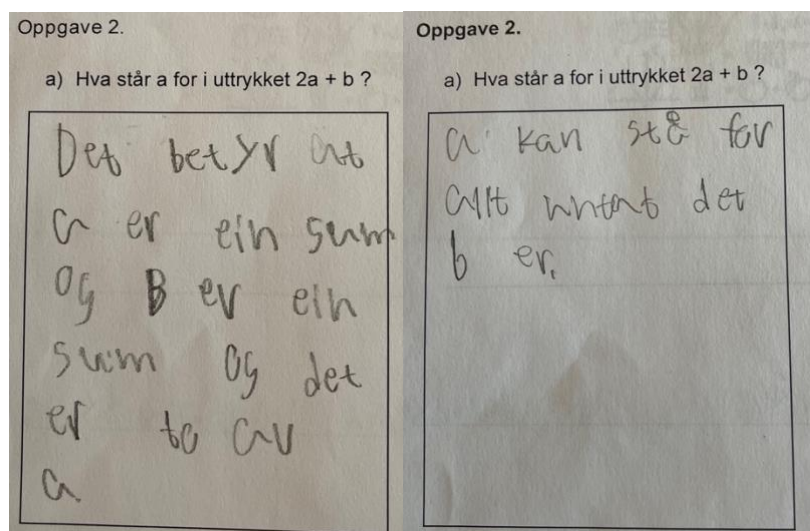 Oppgave 2.
a) Hva står a for i uttrykket 2a + b ?
Det betyr at
a er ein sum
og B er ein
sum og det
er to av
a.
Oppgave 2.
a) Hva står a for i uttrykket 2a + b ?
a kan stå for
allt untat det
b er.